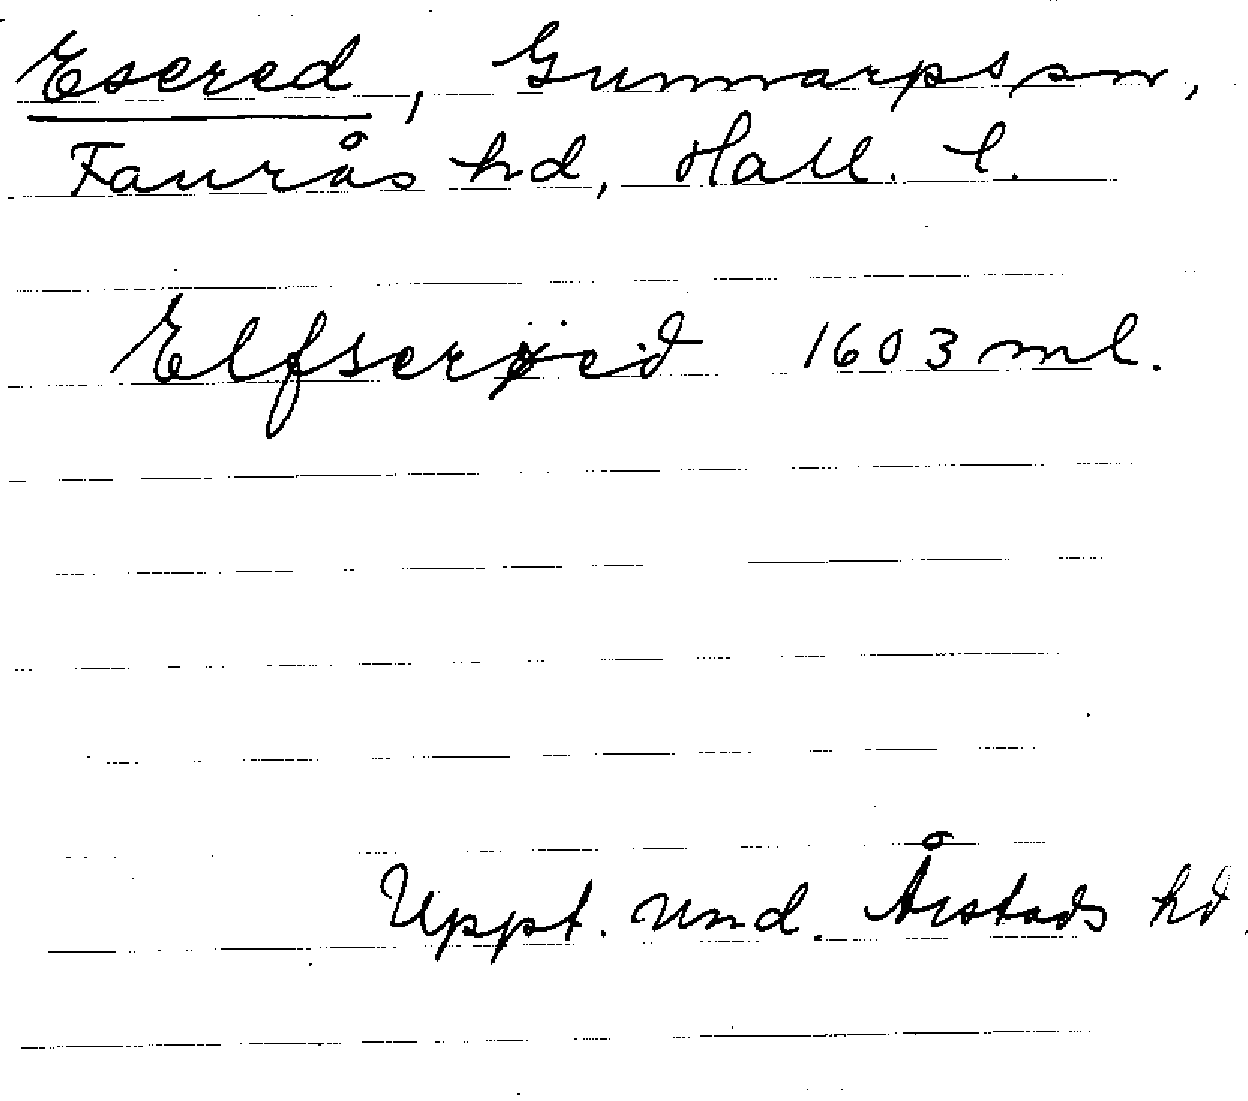 Esered, Gunnarps sn,
Faurås hd, Hall. l.
Elfserøed 1603 ml.
Uppt. und. Årstads hd.